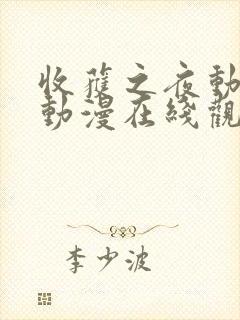 收穫之夜動
動漫在綫觀
李少波